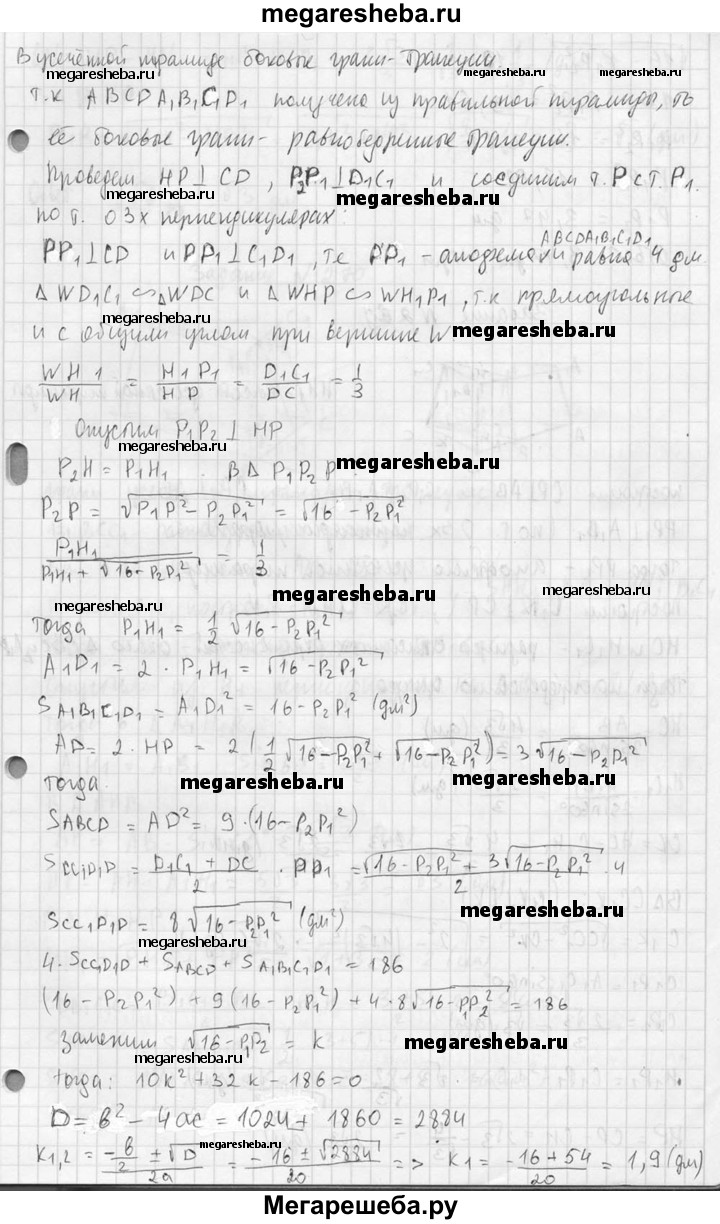 megaresheba.ru
В усечённой пирамиде боковые грани - трапеции.
megaresheba.ru megaresheba.ru megaresheba.ru
т.к ABCDA₁B₁C₁D₁ получена из правильной пирамиды, то
её боковые грани - равнобедренные трапеции.
Проведем HP⊥CD, P₂P₁⊥D₁C₁ и соединим т. P с т. P₁.
megaresheba.ru megaresheba.ru
по т. о 3х перпендикулярах:
PP₁⊥CD и PP₁⊥C₁D₁, т.е PP₁ - апофема ABCDA₁B₁C₁D₁ и равна 4 дм
△WD₁C₁ ∽ △WDC и △WHP ∽ WH₁P₁, т.к прямоугольные
и с общим углом при вершине W megaresheba.ru
WH1/WH = H1P1/HP = D₁C₁/DC = 1/3
Опустим P₁P₂⊥HP
megaresheba.ru
P₂H = P₁H₁. В △ P₁P₂P megaresheba.ru
P₂P = √(P₁P² - P₂P₁²) = √(16 - P₂P₁²)
P₁H₁/(P₁H₁ + √(16 - P₂P₁²)) = 1/3
megaresheba.ru megaresheba.ru megaresheba.ru
тогда P₁H₁ = 1/2 √(16 - P₂P₁²)
A₁D₁ = 2 · P₁H₁ = √(16 - P₂P₁²)
S A₁B₁C₁D₁ = A₁D₁² = 16 - P₂P₁² (дм²)
AD = 2 · HP = 2(1/2 √(16 - P₂P₁²) + √(16 - P₂P₁²)) = 3√(16 - P₂P₁²)
тогда megaresheba.ru megaresheba.ru
S ABCD = AD² = 9 · (16 - P₂P₁²)
S CC₁D₁D = (D₁C₁ + DC)/2 · PP₁ = (√(16 - P₂P₁² + 3√(16 - P₂P₁²))/2 · 4
S CC₁D₁D = 8√(16 - P₂P₁²) (дм²) megaresheba.ru
megaresheba.ru
4 · S CC₁D₁D + S ABCD + S A₁B₁C₁D₁ = 186
(16 - P₂P₁²) + 9(16 - P₂P₁²) + 4 · 8√(16 - P₁P₂²) = 186
заменим √(16 - P₁P₂) = k megaresheba.ru
megaresheba.ru
тогда: 10k² + 32k - 186 = 0
D = b² - 4ac = 1024 + 1860 = 2884
K₁,₂ = (-b/2 ± √D)/2a = (-16 ± √2884)/20 => K₁ = (-16 + 54)/20 = 1,9 (дм)
megaresheba.ru megaresheba.ru
Мегарешеба.ру